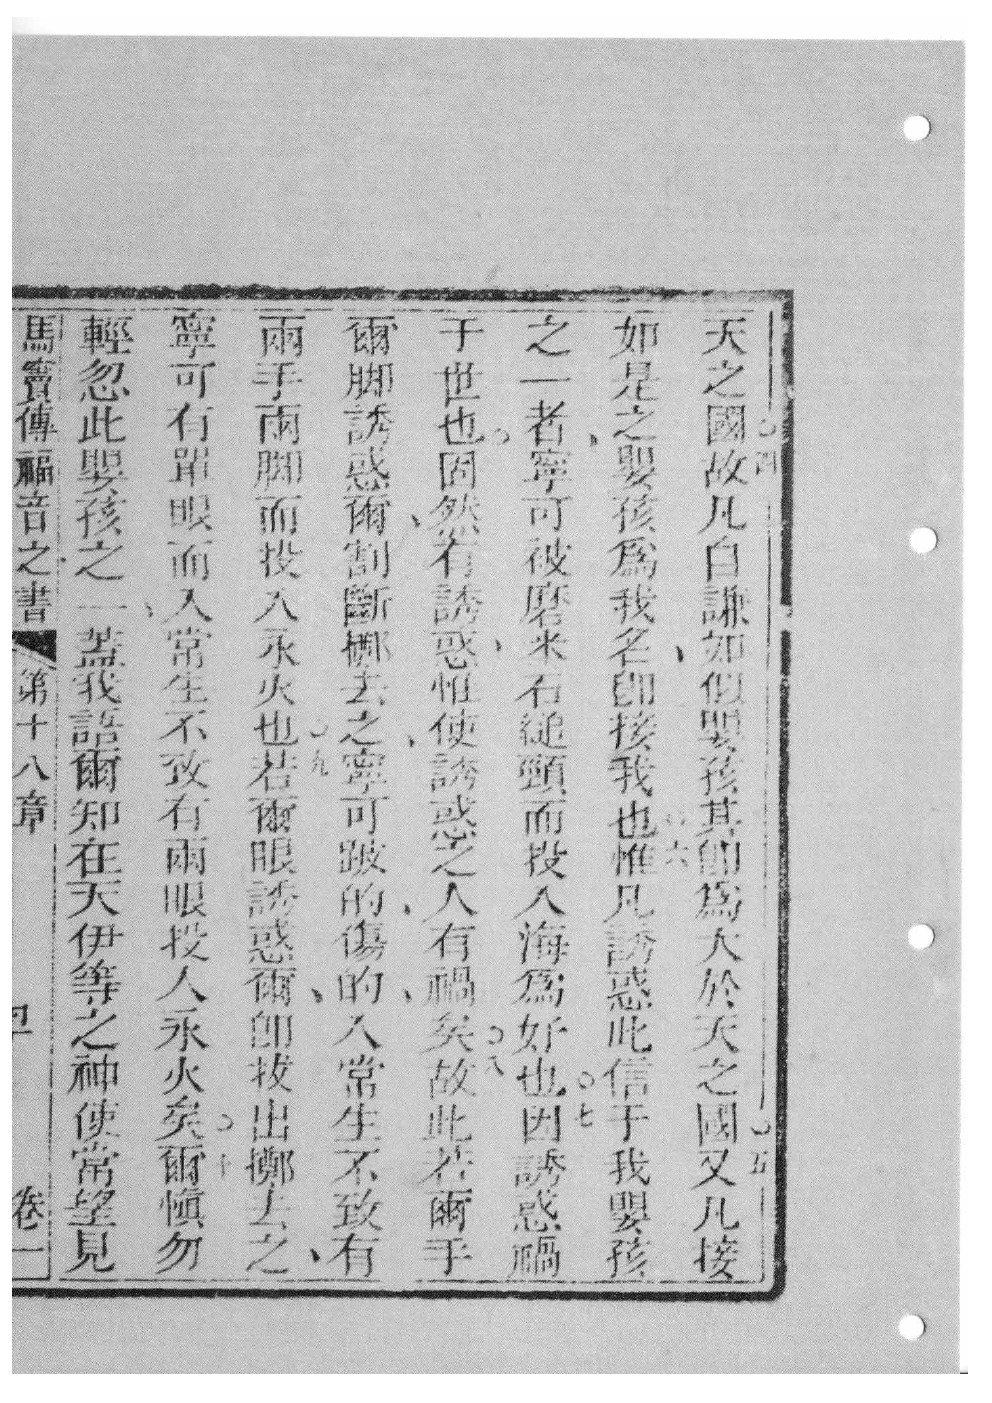 天之國故凡自謙如似嬰孩其卽爲大於天之國又凡接
如是之嬰孩爲我名卽接我也惟凡誘惑此信于我嬰孩
之一者寧可被磨米石縋頸而投入海爲好也因誘惑禍
于世也固然有誘惑惟使誘惑之人有禍矣故此若爾手
爾脚誘惑爾割斷擲去之寧可跛的傷的入常生不致有
兩手兩脚而投入永火也若爾眼誘惑爾卽拔出擲去之
寧可有單眼而入常生不致有兩眼投入永火矣爾愼勿
輕忽此嬰孩之一蓋我語爾知在天伊等之神使常望見
馬竇傳福音之書 第十八章 卷一
〇四
〇五
〇六
〇七
〇八
〇九
〇十